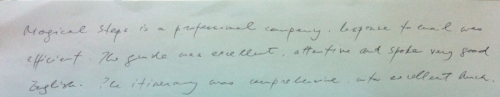 Magical Steps is a professional company. Response to email was
efficient. The guide was excellent, attentive and spoke very good
English. The itinerary was comprehensive. with excellent lunch.